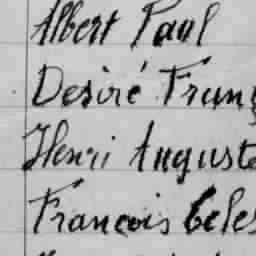 Albert Paul
Desiré Franç
Henri Auguste
Francois Celes